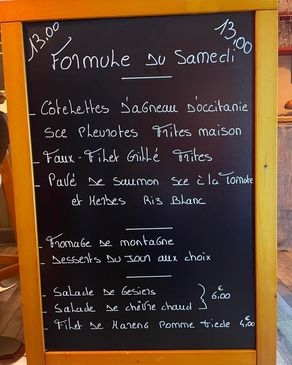 13.00
13.00
Formule Du Samedi
- Côtelettes D'agneau D'occitanie
Sce Pleurotes Frites maison
- Faux-Filet Grillé Frites
- Pavé De Saumon Sce à la Tomate
et Herbes Riz Blanc
- Fromage de montagne
- Desserts Du Jour aux choix
- Salade de Gesiers
- Salade de chêvre chaud } 6.00 €
- Filet De Hareng Pomme tiede 4,00 €